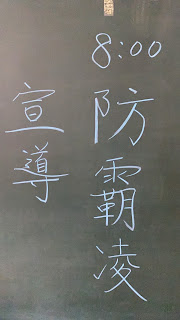 8:00
防霸凌
宣導